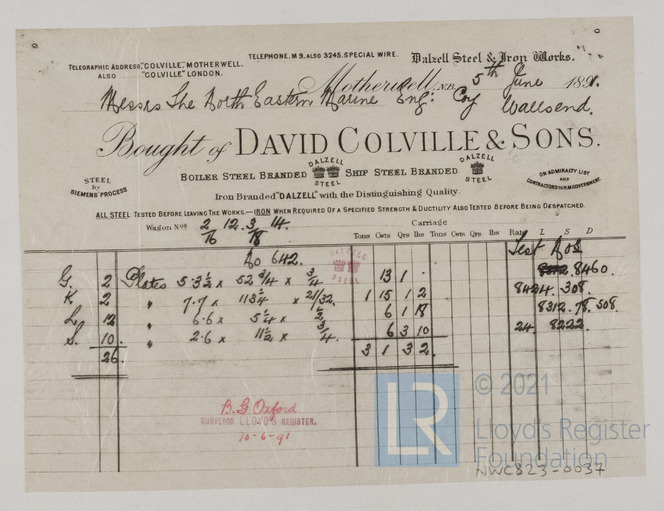 TELEGRAPHIC ADDRESS, "COLVILLE", MOTHERWELL.
ALSO "COLVILLE" LONDON.
TELEPHONE. M 9. ALSO 3245. SPECIAL WIRE.
Dalzell Steel & Iron Works.
Motherwell, N.B. 5th June 1891.
Messrs The North Eastern Marine Eng: Coy Wallsend.
Bought of DAVID COLVILLE & SONS.
STEEL by SIEMENS' PROCESS
BOILER STEEL BRANDED DALZELL STEEL SHIP STEEL BRANDED DALZELL STEEL
ON ADMIRALTY LIST AND CONTRACTORS TO H.M. GOVERNMENT.
Iron Branded "DALZELL" with the Distinguishing Quality.
ALL STEEL TESTED BEFORE LEAVING THE WORKS.—IRON WHEN REQUIRED OF A SPECIFIED STRENGTH & DUCTILITY ALSO TESTED BEFORE BEING DESPATCHED.
Wagon Nos 2/16 12. 3/18 14. Carriage
Tons Cwts Qrs lbs Tons Cwts Qrs lbs Rate L S D
Test Nos
No 642. DALZELL STEEL
G. 2 Plates 5.3½ x 52 3/4 x 3/4 13 1 . 8460.
K. 2 " 7.7 x 113¼ x 21/32 1 15 1 2 8424. 308.
L. 12 " 6.6 x 5¼ x ½ 6 1 18 8312. 78. 508.
S. 10. " 2.6 x 11½ x 3/4. 6 3 10 24. 8222.
26. 3 1 3 2.
B. G. Oxford.
SURVEYOR LLOYD'S REGISTER.
10-6-91
LR
© 2021
Lloyd's Register
Foundation
NWC823-0037